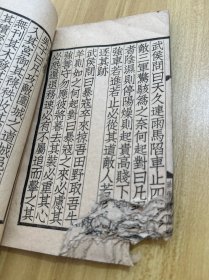 武侯問曰天久連雨馬陷車止四
敵三軍驚駭為之奈何起對曰凡
者陰濕則停陽燥則起貴高賤下
強車若進若止必從其道敵人若
逐其跡
武侯問曰暴寇卒來掠吾田野取吾牛
羊則如之何起對曰暴寇之來必慮其
強善守勿應彼將暮去其裝必重其心
必恐還退務速必有不屬追而擊之其
曰凡攻敵圍城之道城邑
入其宮御其祿秩收其
無刊其木發其屋